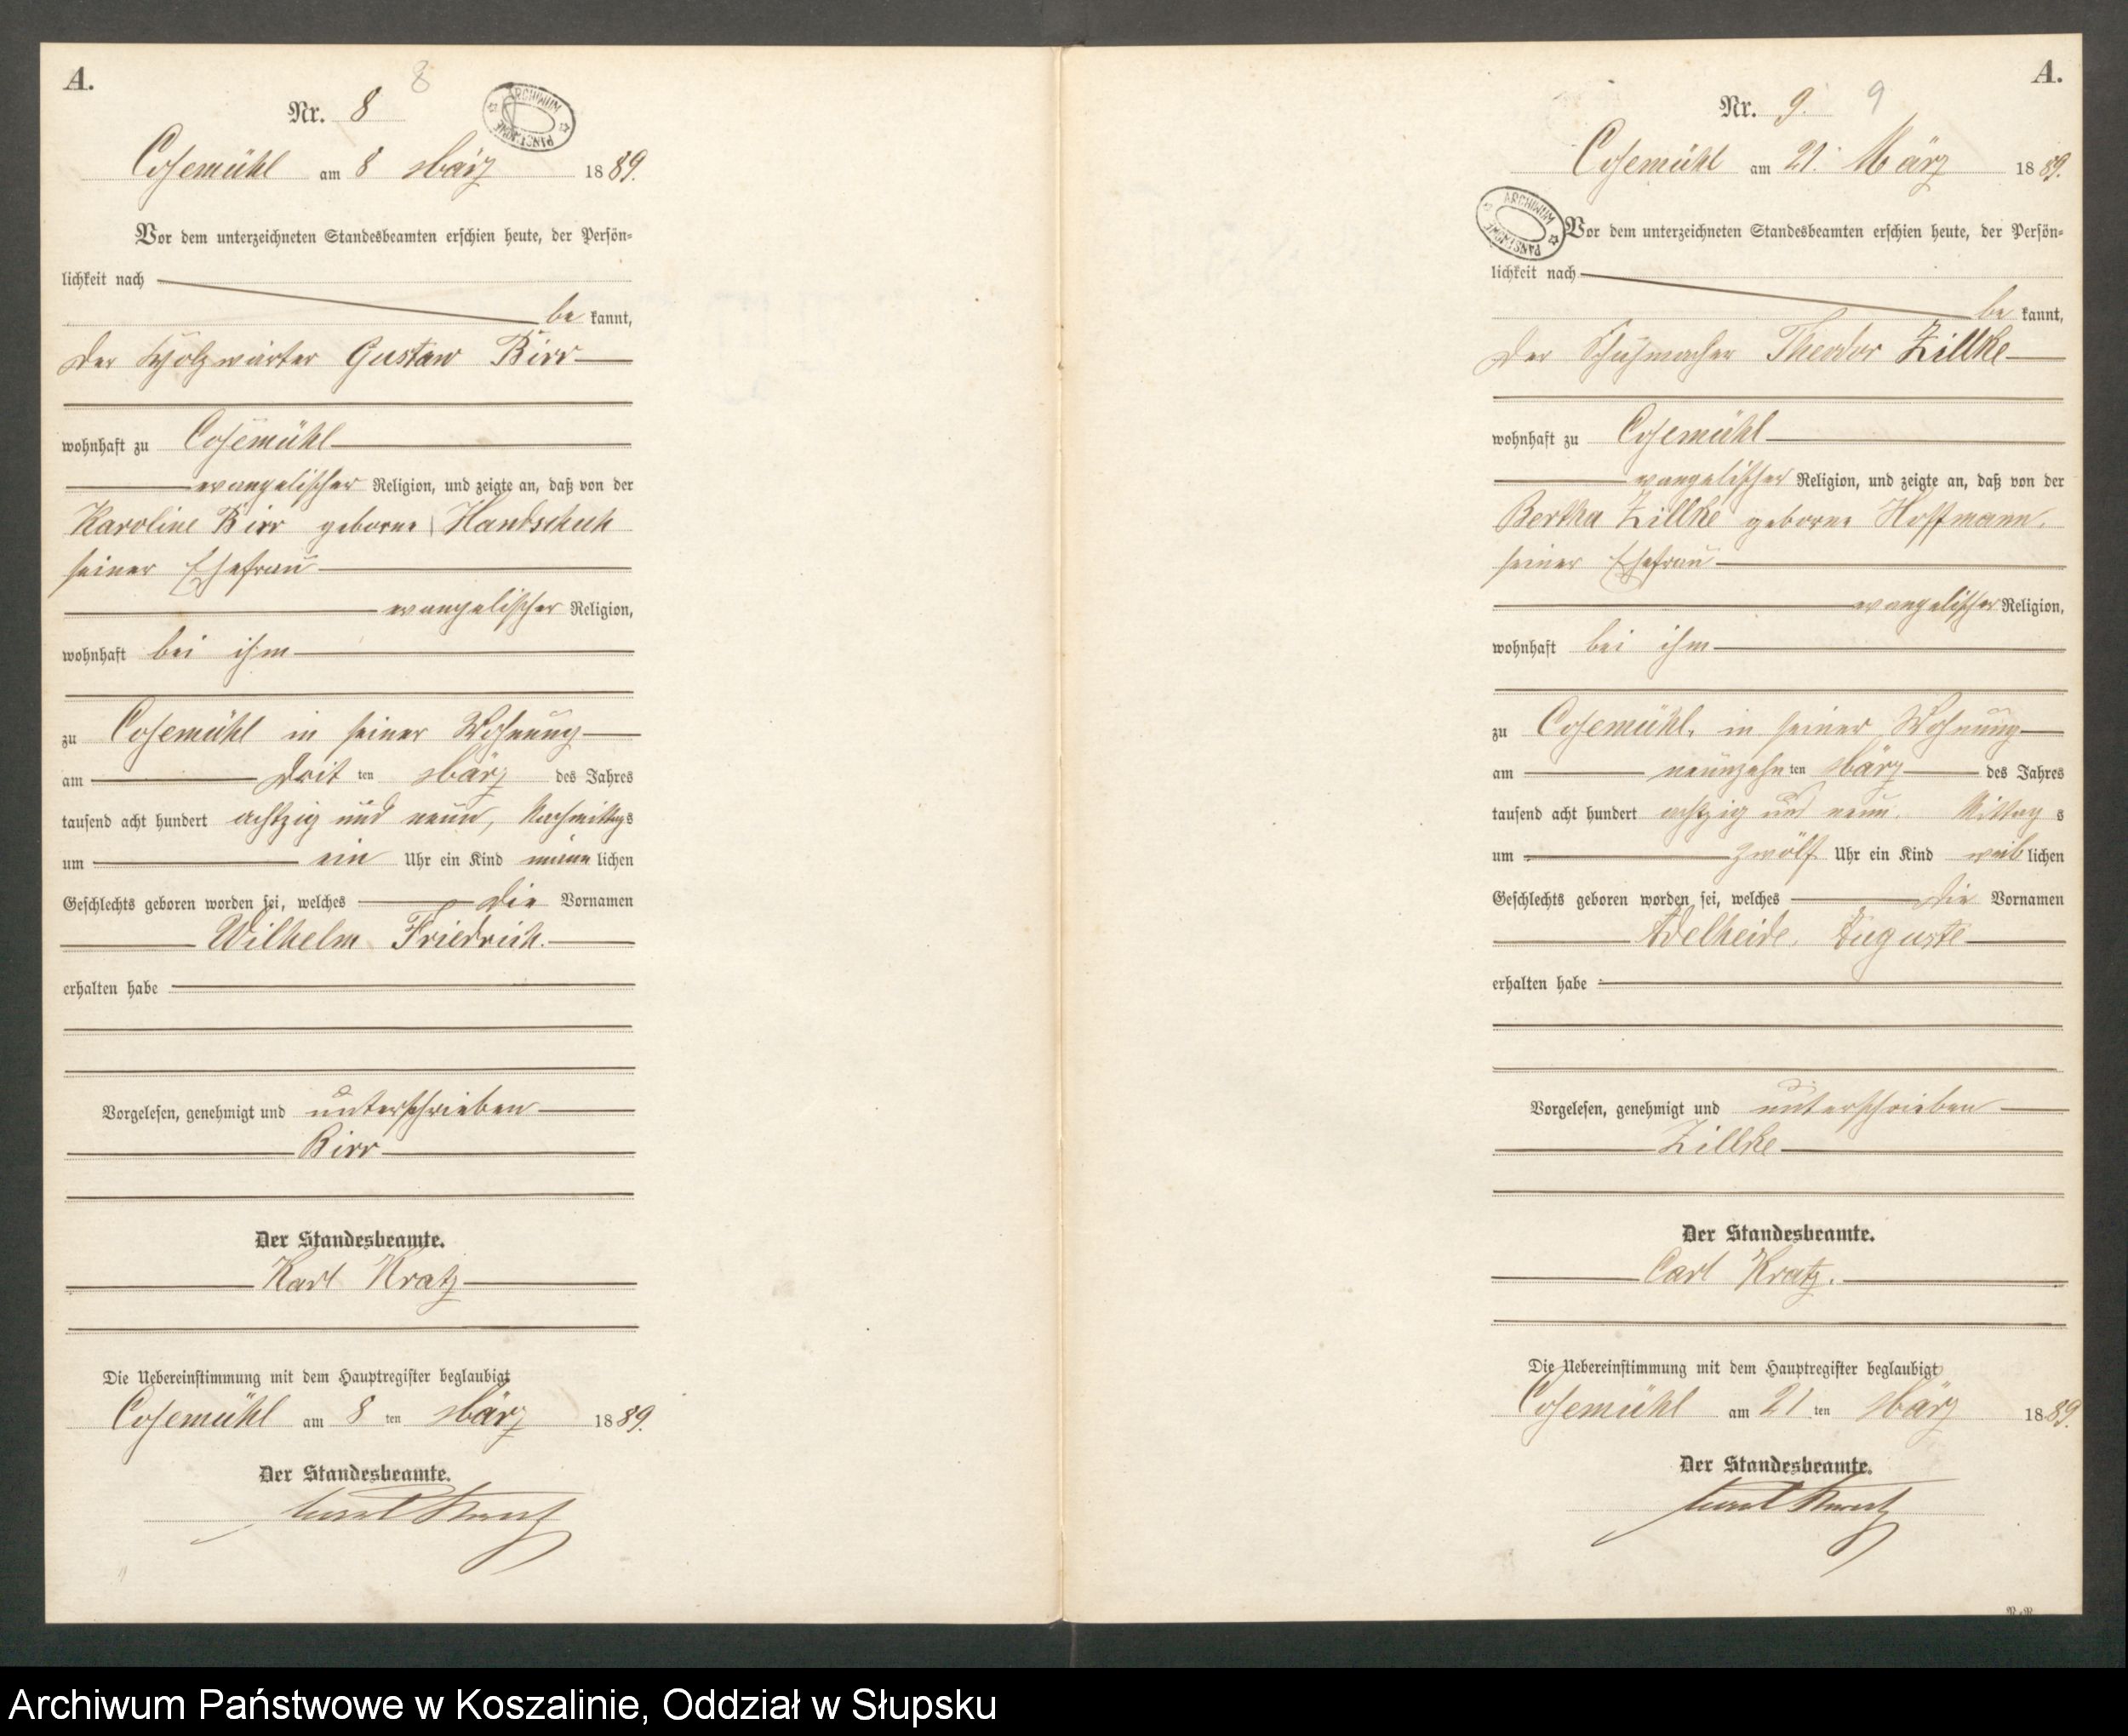 A.
8
Nr. 8
ARCHIWUM PAŃSTWOWE
Cosemühl am 8 März 1889.
Vor dem unterzeichneten Standesbeamten erschien heute, der Persön-
lichkeit nach
be kannt,
der Holzwärter Gustav Birr
wohnhaft zu Cosemühl
evangelischer Religion, und zeigte an, daß von der
Karoline Birr geborne Handschuh
seiner Ehefrau
evangelischer Religion,
wohnhaft bei ihm
zu Cosemühl in seiner Wohnung
am drit ten März des Jahres
tausend acht hundert achtzig und neun, Nachmittags
um ein Uhr ein Kind männ lichen
Geschlechts geboren worden sei, welches die Vornamen
Wilhelm Friedrich.
erhalten habe
Vorgelesen, genehmigt und unterschrieben
Birr
Der Standesbeamte.
Karl Kratz
Die Uebereinstimmung mit dem Hauptregister beglaubigt
Cosemühl am 8 ten März 1889.
Der Standesbeamte.
Carl Kratz
A.
Nr. 9. 9
Cosemühl am 21. März 1889.
ARCHIWUM PAŃSTWOWE
Vor dem unterzeichneten Standesbeamten erschien heute, der Persön-
lichkeit nach
be kannt,
der Schuhmacher Theodor Zillke
wohnhaft zu Cosemühl
evangelischer Religion, und zeigte an, daß von der
Bertha Zillke geborne Hoffmann.
seiner Ehefrau
evangelischer Religion,
wohnhaft bei ihm
zu Cosemühl, in seiner Wohnung
am neunzehn ten März des Jahres
tausend acht hundert achtzig und neun. Mittag s
um zwölf Uhr ein Kind weib lichen
Geschlechts geboren worden sei, welches die Vornamen
Adelheide, Auguste
erhalten habe
Vorgelesen, genehmigt und unterschrieben
Zillke
Der Standesbeamte.
Carl Kratz.
Die Uebereinstimmung mit dem Hauptregister beglaubigt
Cosemühl am 21 ten März 1889.
Der Standesbeamte.
Carl Kratz
Archiwum Państwowe w Koszalinie, Oddział w Słupsku